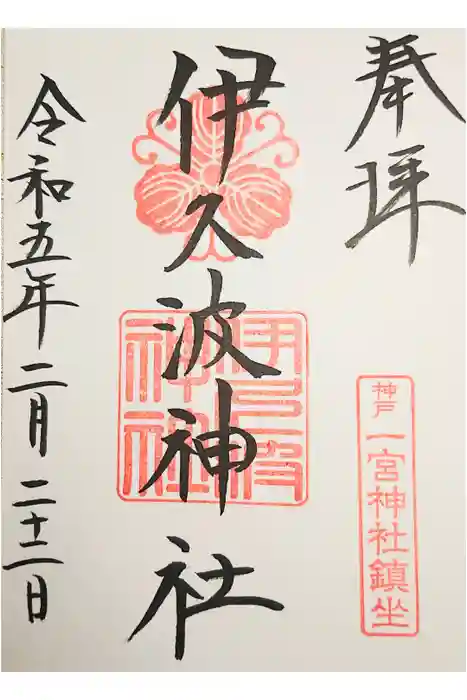 奉拝
神戸
一宮神社鎮坐
伊久波神社
令和五年二月二十二日